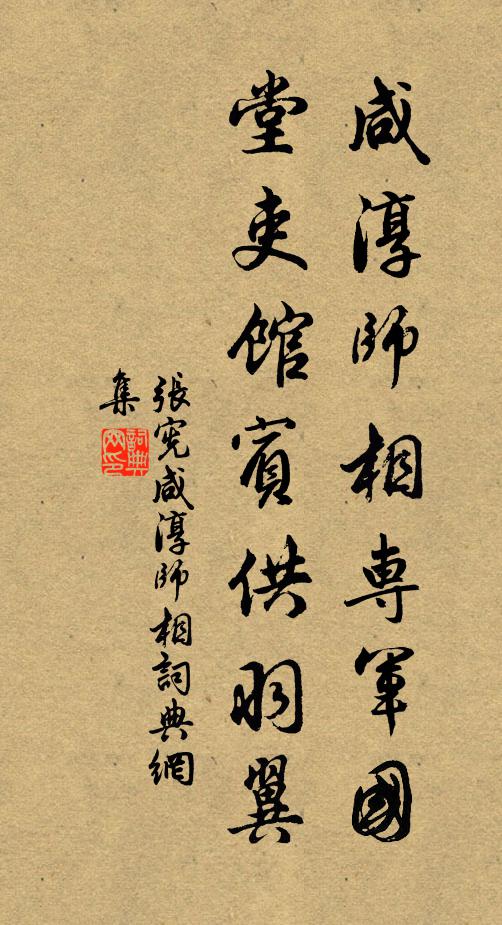 咸淳師相專軍國
堂吏館賓供羽翼
張憲咸淳師相詞典網
集
詞典
网印